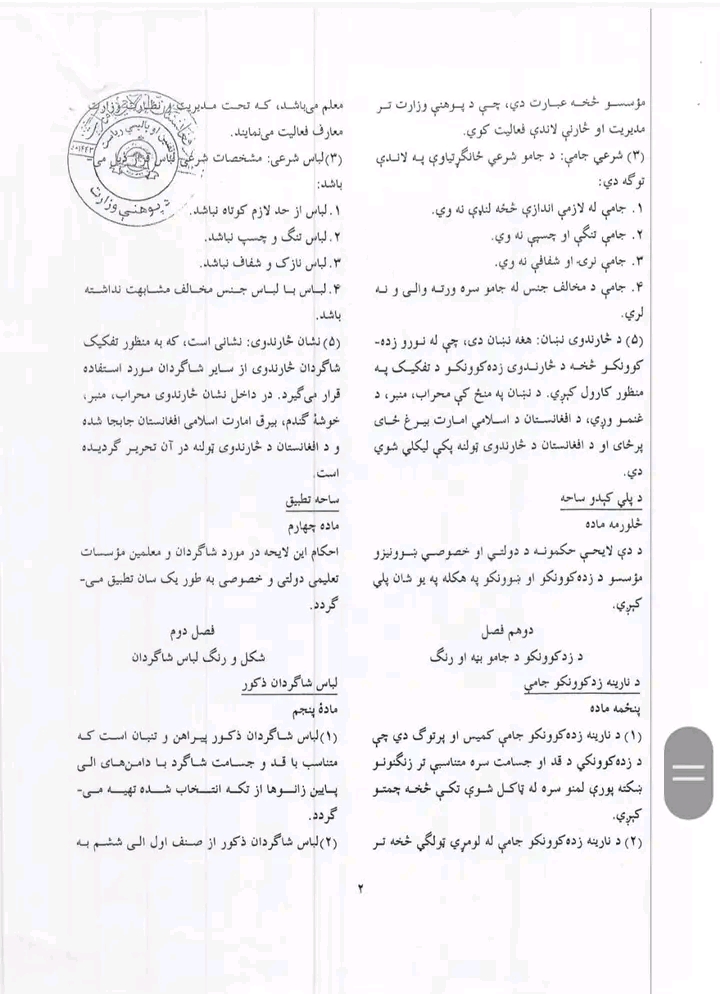 مؤسسو څخه عبارت دي، چې د پوهنې وزارت تر
مدیریت او څارنې لاندې فعالیت کوي.
(۳) شرعي جامې: د جامو شرعي ځانګړتیاوې په لاندې
توګه دي:
۱. جامې له لازمې اندازې څخه لنډې نه وي.
۲. جامې تنګې او چسپې نه وي.
۳. جامې نرۍ او شفافې نه وي.
۴. جامې د مخالف جنس له جامو سره ورته والی و نه
لري.
(۵) د څارندوی نښان: هغه نښان دی، چې له نورو زده-
کوونکو څخه د څارندوی زده‌کوونکو د تفکیک په
منظور کارول کېږي. د نښان په منځ کې محراب، منبر، د
غنمو وږي، د افغانستان د اسلامي امارت بیرغ ځای
پرځای او د افغانستان د څارندوی ټولنه پکې لیکلي شوي
دي.
د پلي کېدو ساحه
څلورمه ماده
د دې لایحې حکمونه د دولتي او خصوصي ښوونیزو
مؤسسو د زده‌کوونکو او ښوونکو په هکله په یو شان پلي
کېږي.
دوهم فصل
د زدکوونکو د جامو بڼه او رنګ
د نارینه زدکوونکو جامې
پنځمه ماده
(۱) د نارینه زده‌کوونکو جامې کمیس او پرتوګ دي چې
د زده‌کوونکي د قد او جسامت سره متناسبې تر زنګنونو
ښکته پورې لمنو سره له ټاکل شوې تکې څخه چمتو
کېږي.
(۲) د نارینه زده‌کوونکو جامې له لومړي ټولګي څخه تر
معلم می‌باشد، که تحت مدیریت و نظارت وزارت
معارف فعالیت می‌نمایند.
(۳) لباس شرعی: مشخصات شرعی لباس قرار ذیل می-
باشد:
۱. لباس از حد لازم کوتاه نباشد.
۲. لباس تنگ و چسپ نباشد.
۳. لباس نازک و شفاف نباشد.
۴. لباس با لباس جنس مخالف مشابهت نداشته
باشد.
(۵) نشان څارندوی: نشانی است، که به منظور تفکیک
شاگردان څارندوی از سایر شاگردان مورد استفاده
قرار می‌گیرد. در داخل نشان څارندوی محراب، منبر،
خوشهٔ گندم، بیرق امارت اسلامی افغانستان جابجا شده
و د افغانستان د څارندوی ټولنه در آن تحریر گردیده
است.
ساحه تطبیق
ماده چهارم
احکام این لایحه در مورد شاگردان و معلمین مؤسسات
تعلیمی دولتی و خصوصی به طور یک سان تطبیق می-
گردد.
فصل دوم
شکل و رنگ لباس شاگردان
لباس شاگردان ذکور
مادهٔ پنجم
(۱) لباس شاگردان ذکور پیراهن و تنبان است که
متناسب با قد و جسامت شاگرد با دامن‌های الی
پایین زانوها از تکه انتخاب شده تهیه می-
گردد.
(۲) لباس شاگردان ذکور از صنف اول الی ششم به
د پوهنې وزارت
۲